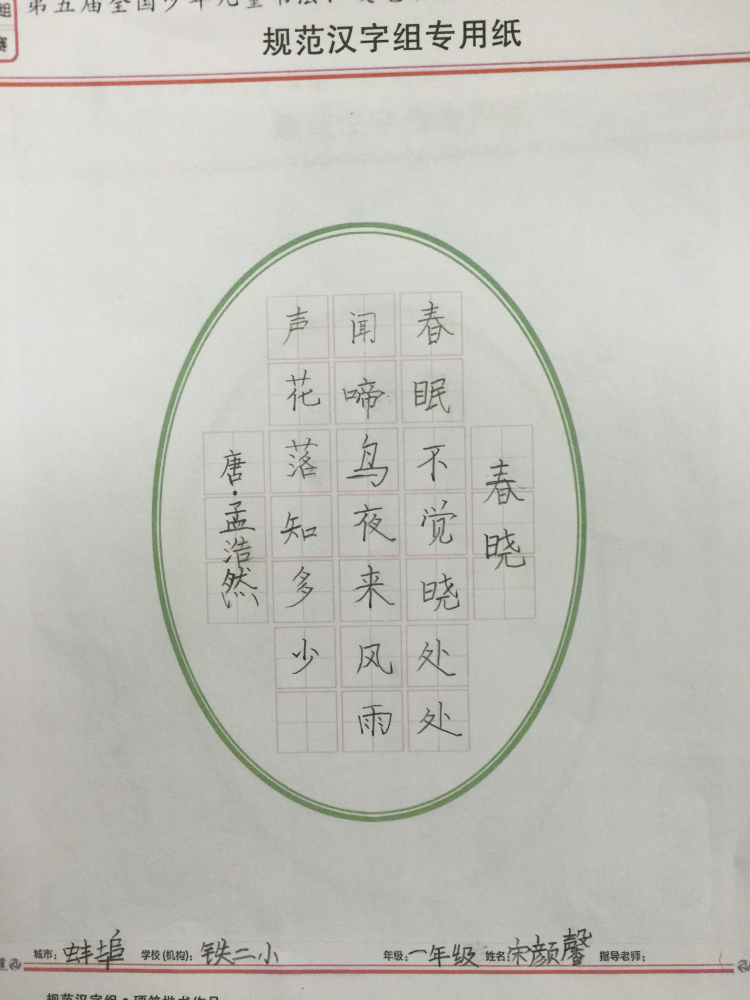 组
赛
第五届全国少年儿童书法
规范汉字组专用纸
春晓
春眠不觉晓处处
闻啼鸟夜来风雨
声花落知多少
唐·孟浩然
城市：蚌埠 学校(机构)：铁二小 年级：一年级 姓名：宋颜馨 指导老师：
规范汉字组·硬笔楷书作品